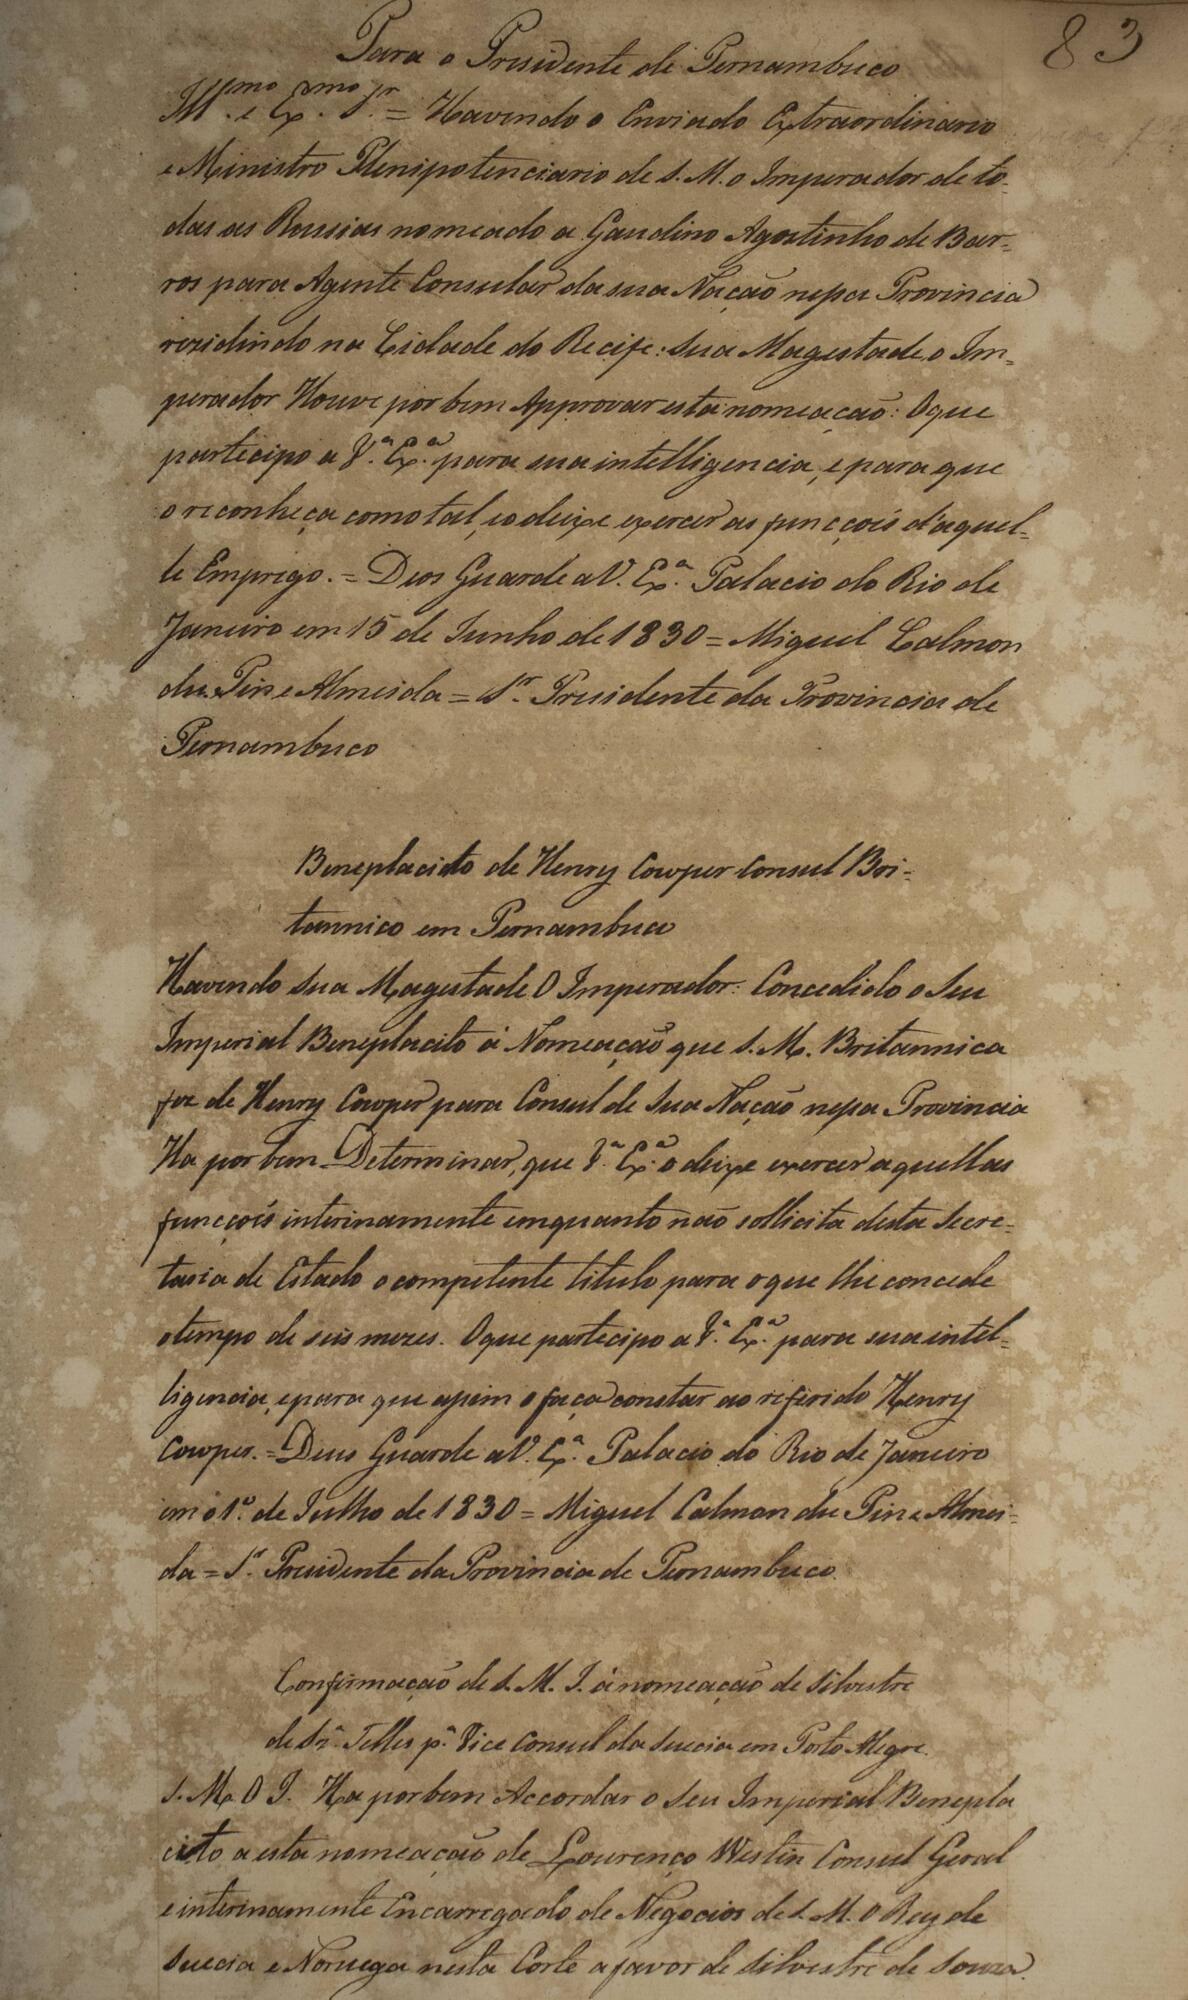 83
Para o Presidente de Pernambuco
Ill.mo e Ex.mo Sr. = Havendo o Enviado Extraordinario
e Ministro Plenipotenciario de S. M. o Imperador de to-
das as Russias nomeado a Gaudino Agostinho de Bar-
ros para Agente Consular da sua Nação nessa Provincia
rezidindo na Cidade do Recife: Sua Magestade o Im-
perador Houve por bem Approvar esta nomeação: O que
partecipo a V.ª Ex.ª para sua intelligencia, e para que
o reconheça como tal, e o deixe exercer as funcçoĩs d'aquel-
le Emprego. = Deos Guarde a V. Ex.ª Palacio do Rio de
Janeiro em 15 de Junho de 1830 = Miguel Calmon
du Pin e Almeida = Sr. Presidente da Provincia de
Pernambuco
Beneplacito de Henry Cowper Consul Bri-
tannico em Pernambuco
Havendo Sua Magestade O Imperador: Concedido o Seu
Imperial Beneplacito á Nomeação que S. M. Britannica
fez de Henry Cowper para Consul de Sua Nação nessa Provincia
Ha por bem Determinar, que V.ª Ex.ª o deixe exercer aquellas
funcçoĩs interinamente emquanto não sollicita desta Secre-
taria de Estado o competente titulo para o que lhe concede
o tempo de seis mezes. O que partecipo a V.ª Ex.ª para sua intel-
ligencia, e para que assim o faça constar ao referido Henry
Cowper. = Deus Guarde a V. Ex.ª Palacio do Rio de Janeiro
em o 1º de Julho de 1830 = Miguel Calmon du Pin e Almei-
da = Sr. Presidente da Provincia de Pernambuco.
Confirmação de S. M. I. á nomeação de Silvestre
de Sz.ª Telles p.ª Vice Consul da Suecia em Porto Alegre.
S. M. O I. Ha por bem Accordar o Seu Imperial Benepla
cito a esta nomeação de Lourenço Westin Consul Geral
e interinamente Encarregado de Negocios de S. M. O Rey de
Suecia e Noruega nesta Corte a favor de Silvestre de Souza